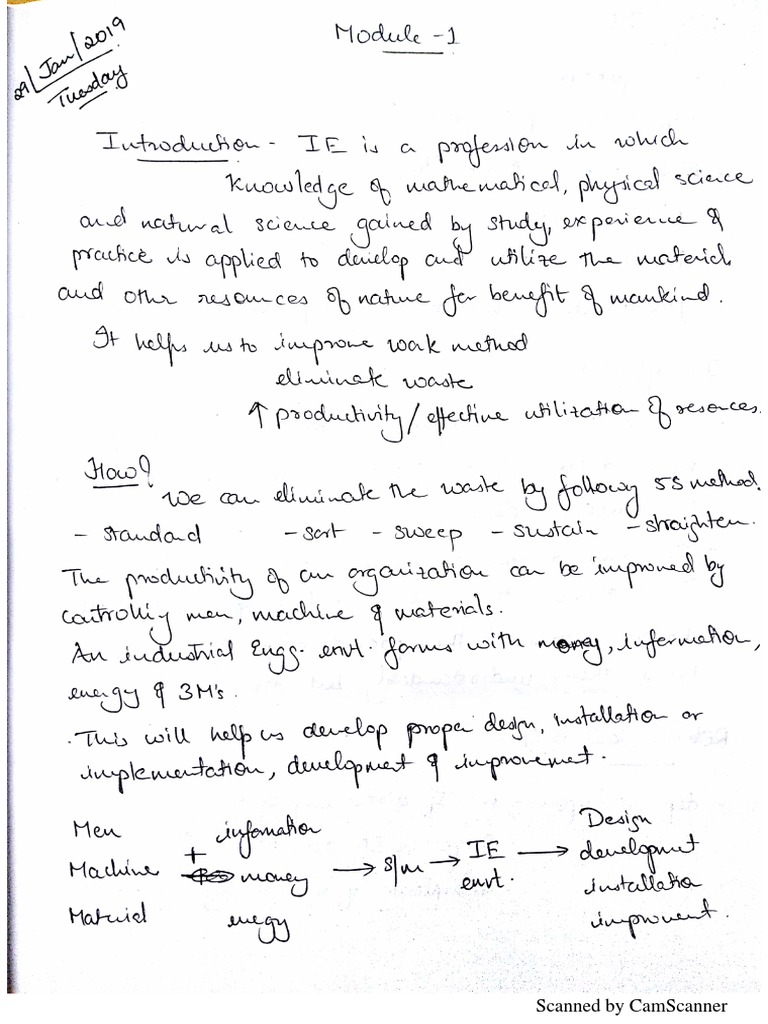 Module - 1
29/Jan/2019
Tuesday
Introduction - IE is a profession in which
knowledge of mathematical, physical science
and natural science gained by study, experience &
practice is applied to develop and utilize the material
and other resources of nature for benefit of mankind.
It helps us to improve work method
eliminate waste
↑ productivity/effective utilization of resorces.
How?
We can eliminate the waste by followy 5S method.
- standard - sort - sweep - sustain - straighten.
The productivity of an organization can be improved by
controlling men, machine & materials.
An industrial Engg. envt. forms with money, information,
energy & 3M's.
. This will help us develop proper design, installation or
implementation, development & improvement.
Men + infomation Design
Machine money → s/m → IE → development
envt. installation
Material enegy improvent.
Scanned by CamScanner